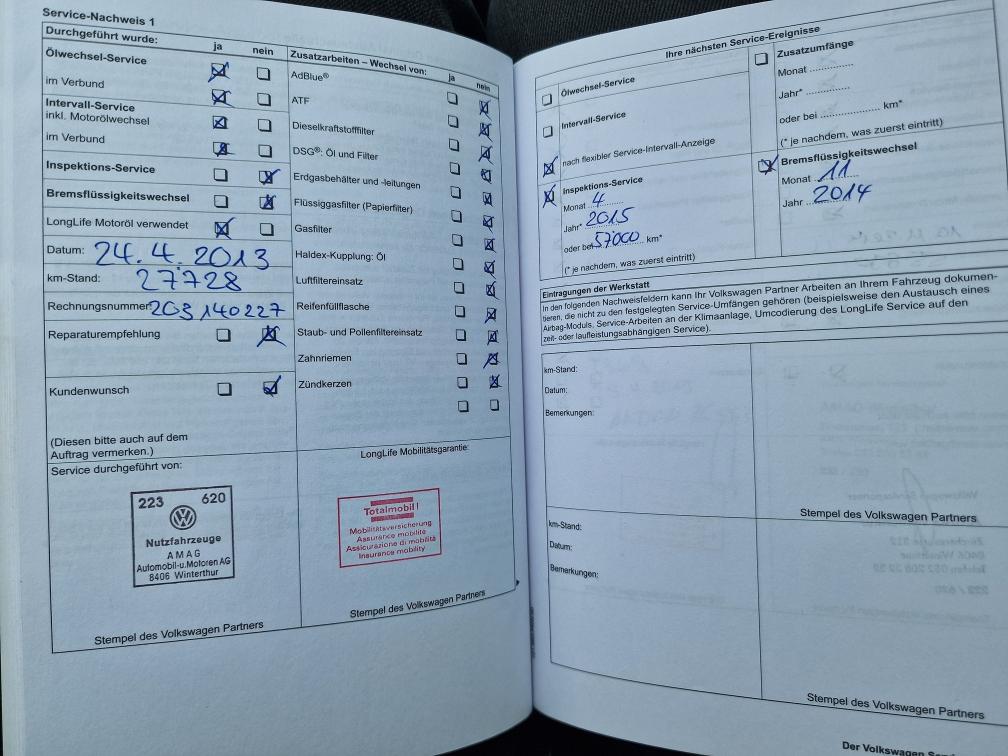 Service-Nachweis 1
Durchgeführt wurde: ja nein
Ölwechsel-Service
im Verbund
Intervall-Service
inkl. Motorölwechsel
im Verbund
Inspektions-Service
Bremsflüssigkeitswechsel
LongLife Motoröl verwendet
Datum: 24.4.2013
km-Stand: 27728
Rechnungsnummer: 203140227
Reparaturempfehlung
Kundenwunsch
(Diesen bitte auch auf dem
Auftrag vermerken.)
Service durchgeführt von:
223 620
Nutzfahrzeuge
AMAG
Automobil-u.Motoren AG
8406 Winterthur
Stempel des Volkswagen Partners
Zusatzarbeiten – Wechsel von: ja nein
AdBlue®
ATF
Dieselkraftstofffilter
DSG®: Öl und Filter
Erdgasbehälter und -leitungen
Flüssiggasfilter (Papierfilter)
Gasfilter
Haldex-Kupplung: Öl
Luftfiltereinsatz
Reifenfüllflasche
Staub- und Pollenfiltereinsatz
Zahnriemen
Zündkerzen
LongLife Mobilitätsgarantie:
Totalmobil!
Mobilitätsversicherung
Assurance mobilité
Assicurazione di mobilità
Insurance mobility
Stempel des Volkswagen Partners
Ihre nächsten Service-Ereignisse
Ölwechsel-Service
Intervall-Service
nach flexibler Service-Intervall-Anzeige
Inspektions-Service
Monat 4
Jahr* 2015
oder bei 57000 km*
(* je nachdem, was zuerst eintritt)
Zusatzumfänge
Monat ..............
Jahr* ..............
oder bei .................... km*
(* je nachdem, was zuerst eintritt)
Bremsflüssigkeitswechsel
Monat 11
Jahr 2014
Eintragungen der Werkstatt
In den folgenden Nachweisfeldern kann Ihr Volkswagen Partner Arbeiten an Ihrem Fahrzeug dokumen-
tieren, die nicht zu den festgelegten Service-Umfängen gehören (beispielsweise den Austausch eines
Airbag-Moduls, Service-Arbeiten an der Klimaanlage, Umcodierung des LongLife Service auf den
zeit- oder laufleistungsabhängigen Service).
km-Stand:
Datum:
Bemerkungen:
Stempel des Volkswagen Partners
km-Stand:
Datum:
Bemerkungen:
Stempel des Volkswagen Partners
Der Volkswagen